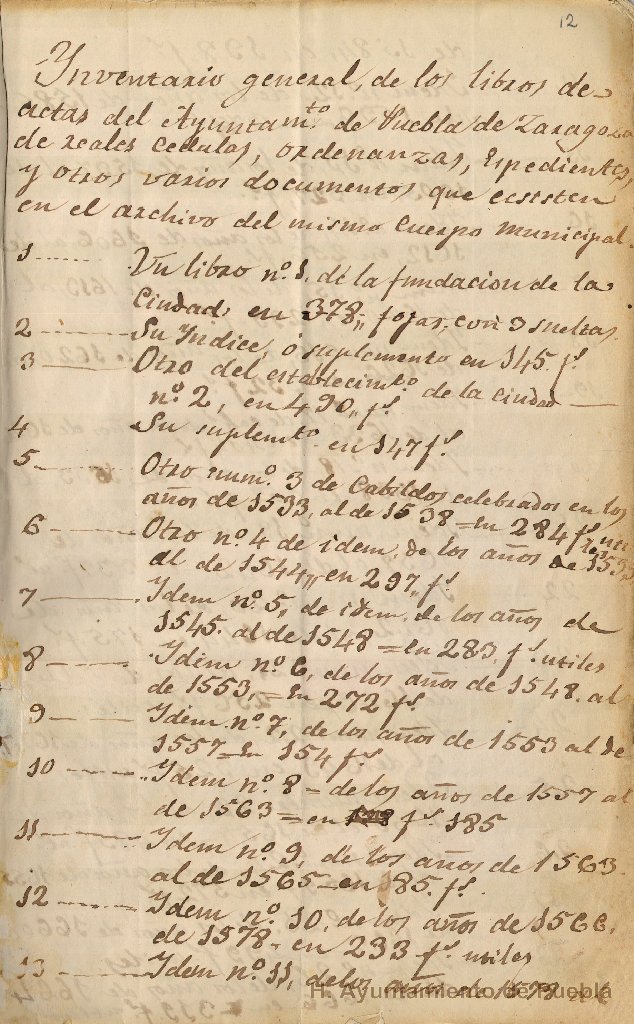 12
Ynventario general, de los libros de
actas del Ayuntam.to de Puebla de Zaragoza
de reales cedulas, ordenanzas, Espedientes,
y otros varios documentos que ecsisten
en el archivo del mismo Cuerpo Municipal.
1 Un libro n.o 1. de la fundacion de la
Ciudad, en 378,, fojas, con 3 sueltas.
2 Su Yndice, ó suplemento en 145. f.s
3 Otro del establecim.to de la Ciudad
n.o 2, en 490,, f.s
4 Su suplem.to en 147 f.s
5 Otro num.o 3 de Cabildos celebrados en los
años de 1533, al de 1538 = en 284 f.s
6 Otro n.o 4 de idem, de los años de
al de 1544,, en 297,, f.s
7 Ydem n.o 5, de idem, de los años de
1545. al de 1548 = en 283 f.s utiles
8 Ydem n.o 6, de los años de 1548. al
de 1553, = En 272 f.s
9 Ydem n.o 7, de los años de 1553 al de
1557 = En 154 f.s
10 Ydem n.o 8 = de los años de 1557 al
de 1563 = en f.s 185
11 Ydem n.o 9, de los años de 1563.
al de 1565 = en 185. f.s
12 Ydem n.o 10, de los años de 1566.
de 1578, en 233 f.s utiles
13 Ydem n.o 11, de los años de
H. Ayuntamiento de Puebla